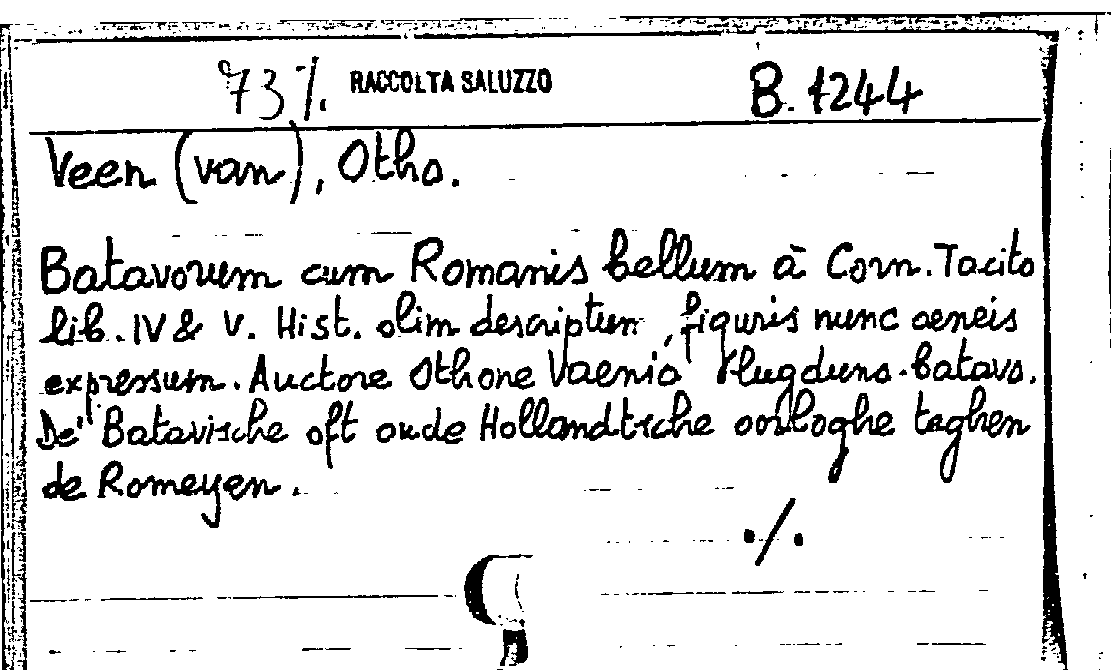 73 ./. RACCOLTA SALUZZO B. 1244
Veen (van), Otho.
Batavorum cum Romanis bellum à Corn. Tacito
lib. IV & V. Hist. olim descriptum, figuris nunc aeneis
expressum. Auctore Othone Vaenio Vlugduno-batavo.
De Batavische oft oude Hollandtsche oorloghe teghen
de Romeyen.
./.